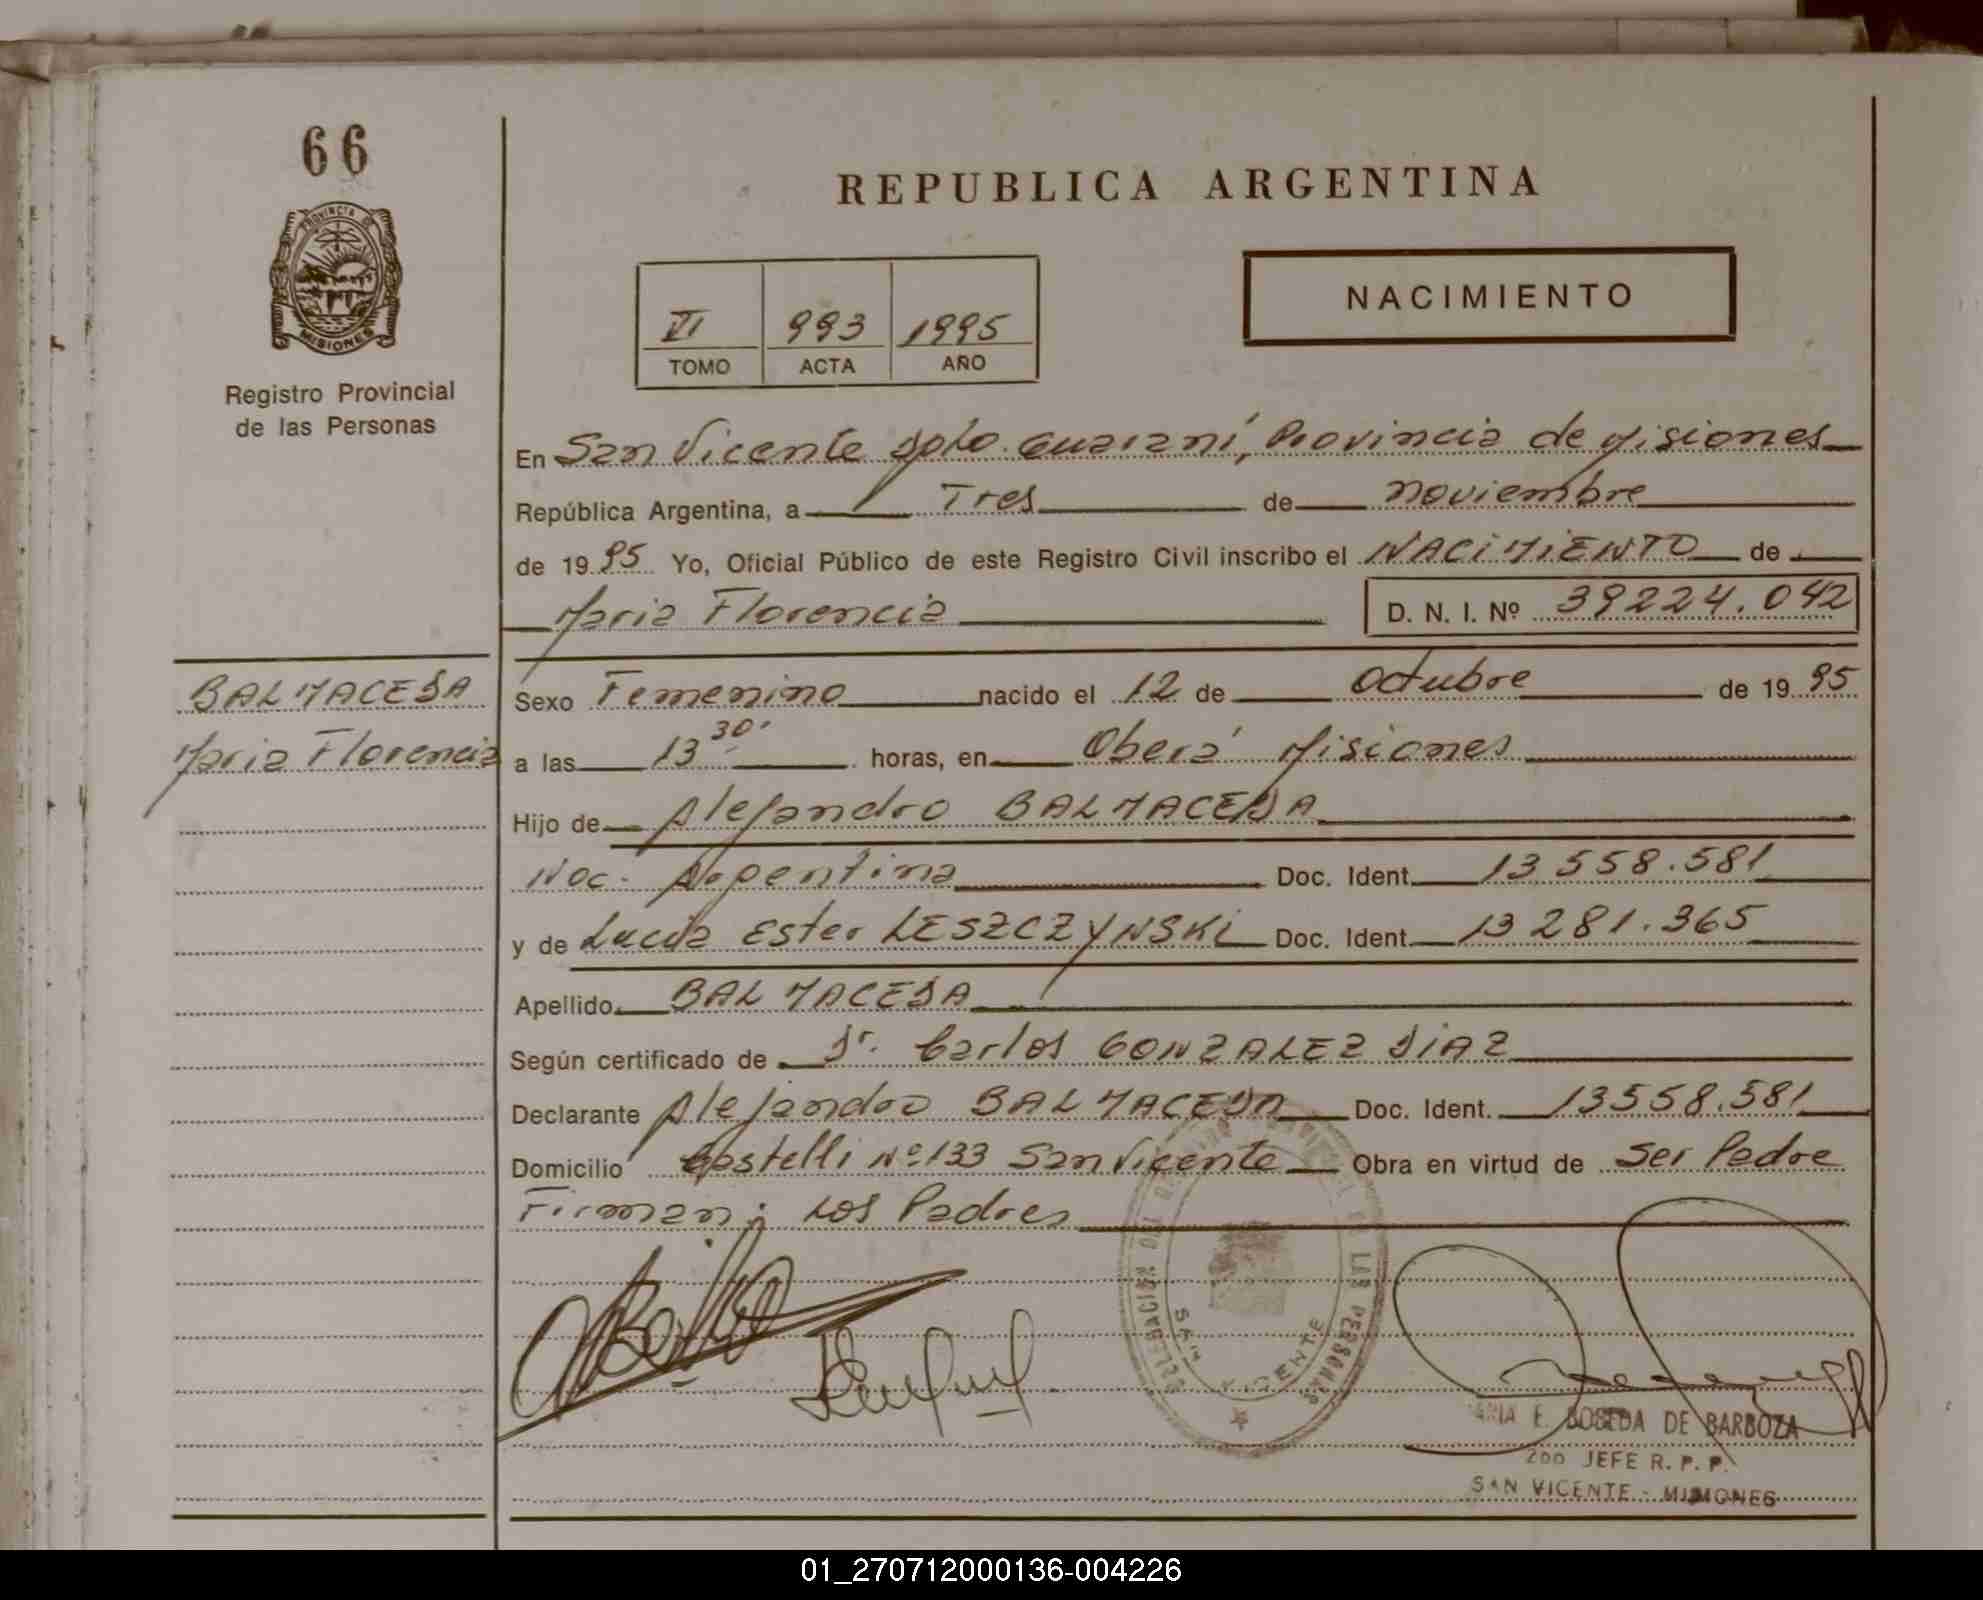 66
PROVINCIA DE
MISIONES
Registro Provincial
de las Personas
REPUBLICA ARGENTINA
VI 993 1995
TOMO ACTA AÑO
NACIMIENTO
En San Vicente Dpto. Guaraní, Provincia de Misiones
República Argentina, a Tres de noviembre
de 1995 Yo, Oficial Público de este Registro Civil inscribo el NACIMIENTO de
Maria Florencia D. N. I. Nº 39224.042
BALMACEDA
Maria Florencia
Sexo Femenino nacido el 12 de Octubre de 1995
a las 13 30' horas, en Oberá Misiones
Hijo de Alejandro BALMACEDA
Nac. Argentina Doc. Ident. 13 558.581
y de Lucia Ester LESZCZYNSKI Doc. Ident. 13 281.365
Apellido BALMACEDA
Según certificado de Dr. Carlos GONZALEZ DIAZ
Declarante Alejandro BALMACEDA Doc. Ident. 13558.581
Domicilio Castelli Nº 133 San Vicente Obra en virtud de Ser Padre
Firman; Los Padres
DE LAS PERSONAS
SAN VICENTE
E. BOSEDA DE BARBOZA
2do JEFE R. P. P.
SAN VICENTE - MISIONES
01_270712000136-004226